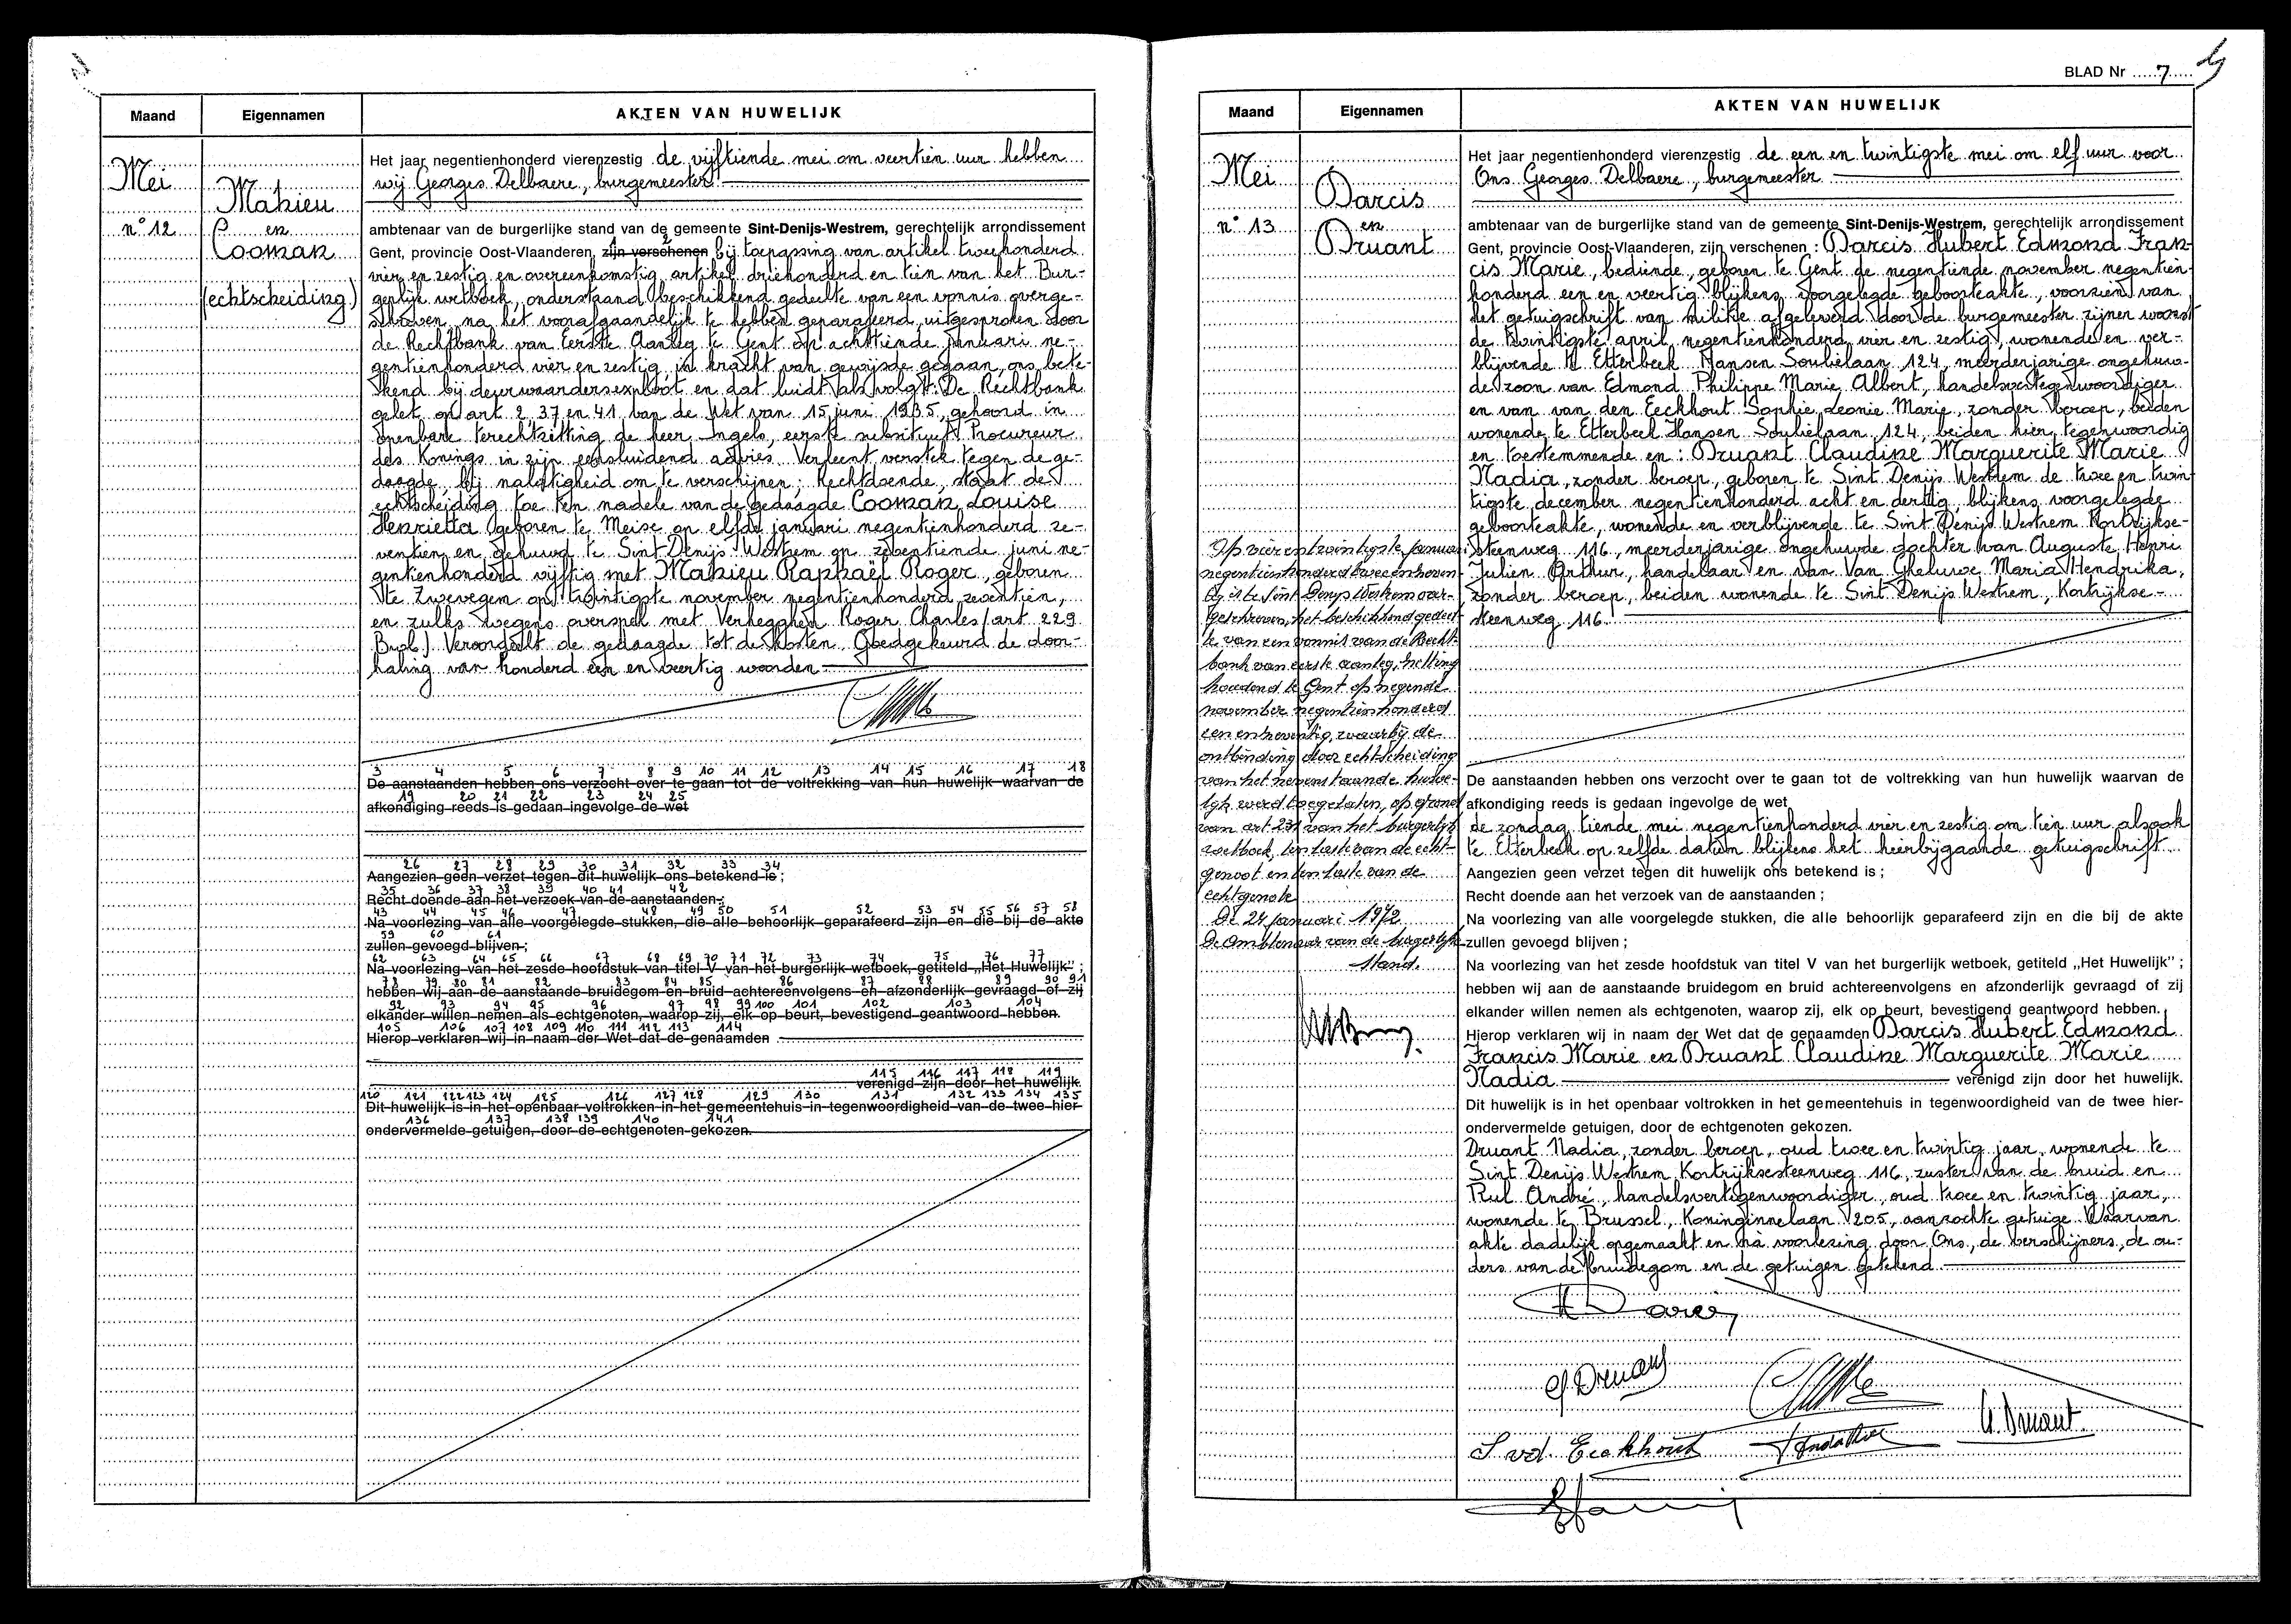 Maand
Eigennamen
AKTEN VAN HUWELIJK
Mei
n° 12
Mahieu
en
Cooman
(echtscheiding)
Het jaar negentienhonderd vierenzestig de vijftiende mei om veertien uur hebben
wij Georges Delbaere, burgemeester
ambtenaar van de burgerlijke stand van de gemeente Sint-Denijs-Westrem, gerechtelijk arrondissement
1 2
Gent, provincie Oost-Vlaanderen, zijn verschenen bij toepassing van artikel tweehonderd
vier en zestig en overeenkomstig artikel driehonderd en tien van het Bur-
gerlijk wetboek, onderstaand beschikkend gedeelte van een vonnis overge-
schreven, na het voorafgaandelijk te hebben geparafeerd, uitgesproken door
de Rechtbank van Eerste Aanleg te Gent op achttiende januari ne-
gentienhonderd vier en zestig, in kracht van gewijsde gegaan, ons bete-
kend bij deurwaardersexploot en dat luidt als volgt: De Rechtbank
gelet op art 2, 37 en 41 van de Wet van 15 juni 1935, gehoord in
openbare terechtzitting de heer Ingels, eerste substituut Procureur
des Konings in zijn eensluidend advies. Verleent verstek tegen de ge-
daagde, bij nalatigheid om te verschijnen; Rechtdoende, staat de
echtscheiding toe ten nadele van de gedaagde Cooman Louise
Henrietta geboren te Meise op elfde januari negentienhonderd ze-
ventien en gehuwd te Sint Denijs Westrem op zeventiende juni ne-
gentienhonderd vijftig met Mahieu Raphaël Roger, geboren
te Zwevegem op twintigste november negentienhonderd zeventien,
en zulks wegens overspel met Verhegghen Roger Charles (art 229
B.w.b.) Veroordeelt de gedaagde tot de kosten. Goedgekeurd de door-
haling van honderd een en veertig woorden
3 4 5 6 7 8 9 10 11 12 13 14 15 16 17 18
De aanstaanden hebben ons verzocht over te gaan tot de voltrekking van hun huwelijk waarvan de
19 20 21 22 23 24 25
afkondiging reeds is gedaan ingevolge de wet
26 27 28 29 30 31 32 33 34
Aangezien geen verzet tegen dit huwelijk ons betekend is ;
35 36 37 38 39 40 41 42
Recht doende aan het verzoek van de aanstaanden ;
43 44 45 46 47 48 49 50 51 52 53 54 55 56 57 58
Na voorlezing van alle voorgelegde stukken, die alle behoorlijk geparafeerd zijn en die bij de akte
59 60 61
zullen gevoegd blijven ;
62 63 64 65 66 67 68 69 70 71 72 73 74 75 76 77
Na voorlezing van het zesde hoofdstuk van titel V van het burgerlijk wetboek, getiteld „Het Huwelijk" ;
78 79 80 81 82 83 84 85 86 87 88 89 90 91
hebben wij aan de aanstaande bruidegom en bruid achtereenvolgens en afzonderlijk gevraagd of zij
92 93 94 95 96 97 98 99 100 101 102 103 104
elkander willen nemen als echtgenoten, waarop zij, elk op beurt, bevestigend geantwoord hebben.
105 106 107 108 109 110 111 112 113 114
Hierop verklaren wij in naam der Wet dat de genaamden
115 116 117 118 119
verenigd zijn door het huwelijk.
120 121 122 123 124 125 126 127 128 129 130 131 132 133 134 135
Dit huwelijk is in het openbaar voltrokken in het gemeentehuis in tegenwoordigheid van de twee hier-
136 137 138 139 140 141
ondervermelde getuigen, door de echtgenoten gekozen.
BLAD Nr 7
Maand
Eigennamen
AKTEN VAN HUWELIJK
Mei
n° 13
Darcis
en
Druant
Op vier en twintigste januari
negentienhonderd twee en zeven-
tig is te Sint Denys Westrem over-
geschreven, het beschikkend gedeel-
te van een vonnis van de Recht-
bank van eerste aanleg, zetting
houdend te Gent op negende
november negentienhonderd
een en zeventig, waarbij de
ontbinding door echtscheiding
van het nevenstaande huwe-
lijk werd toegelaten, op grond
van art 231 van het burgerlijk
wetboek, ten laste van de echt-
genoot en ten laste van de
echtgenote
De 24 januari 1972
De Ambtenaar van de burgerlijke
stand.
Het jaar negentienhonderd vierenzestig de een en twintigste mei om elf uur voor
Ons Georges Delbaere, burgemeester
ambtenaar van de burgerlijke stand van de gemeente Sint-Denijs-Westrem, gerechtelijk arrondissement
Gent, provincie Oost-Vlaanderen, zijn verschenen : Darcis Hubert Edmond Fran-
cis Marie, bediende, geboren te Gent de negentiende november negentien-
honderd een en veertig blijkens voorgelegde geboorteakte, voorzien van
het getuigschrift van militie afgeleverd door de burgemeester zijner woonst
de twintigste april negentienhonderd vier en zestig, wonende en ver-
blijvende te Etterbeek Hansen Soulielaan 124, meerderjarige ongehuw-
de zoon van Edmond Philippe Marie Albert, handelsvertegenwoordiger
en van van den Eeckhout Sophie Leonie Marie, zonder beroep, beiden
wonende te Etterbeek Hansen Soulielaan 124, beiden hier tegenwoordig
en toestemmende en : Druant Claudine Marguerite Marie
Nadia, zonder beroep, geboren te Sint Denijs Westrem de twee en twin-
tigste december negentienhonderd acht en dertig, blijkens voorgelegde
geboorteakte, wonende en verblijvende te Sint Denijs Westrem Kortrijkse-
steenweg 116, meerderjarige ongehuwde dochter van Auguste Henri
Julien Arthur, handelaar en van Van Gheluwe Maria Hendrika,
zonder beroep, beiden wonende te Sint Denijs Westrem, Kortrijkse-
steenweg 116.
De aanstaanden hebben ons verzocht over te gaan tot de voltrekking van hun huwelijk waarvan de
afkondiging reeds is gedaan ingevolge de wet
de zondag tiende mei negentienhonderd vier en zestig om tien uur alsook
te Etterbeek op zelfde datum blijkens het hierbijgaande getuigschrift
Aangezien geen verzet tegen dit huwelijk ons betekend is ;
Recht doende aan het verzoek van de aanstaanden ;
Na voorlezing van alle voorgelegde stukken, die alle behoorlijk geparafeerd zijn en die bij de akte
zullen gevoegd blijven ;
Na voorlezing van het zesde hoofdstuk van titel V van het burgerlijk wetboek, getiteld „Het Huwelijk" ;
hebben wij aan de aanstaande bruidegom en bruid achtereenvolgens en afzonderlijk gevraagd of zij
elkander willen nemen als echtgenoten, waarop zij, elk op beurt, bevestigend geantwoord hebben.
Hierop verklaren wij in naam der Wet dat de genaamden Darcis Hubert Edmond
Francis Marie en Druant Claudine Marguerite Marie
Nadia verenigd zijn door het huwelijk.
Dit huwelijk is in het openbaar voltrokken in het gemeentehuis in tegenwoordigheid van de twee hier-
ondervermelde getuigen, door de echtgenoten gekozen.
Druant Nadia, zonder beroep, oud twee en twintig jaar, wonende te
Sint Denijs Westrem Kortrijksesteenweg 116, zuster van de bruid en
Rul André, handelsvertegenwoordiger, oud twee en twintig jaar,
wonende te Brussel, Koninginnelaan 205, aanzochte getuige. Waarvan
akte dadelijk opgemaakt en na voorlezing door Ons, de verschijners, de ou-
ders van de bruidegom en de getuigen getekend
H Darcis
C Druant
S. vd. Eeckhout
N. Druant.